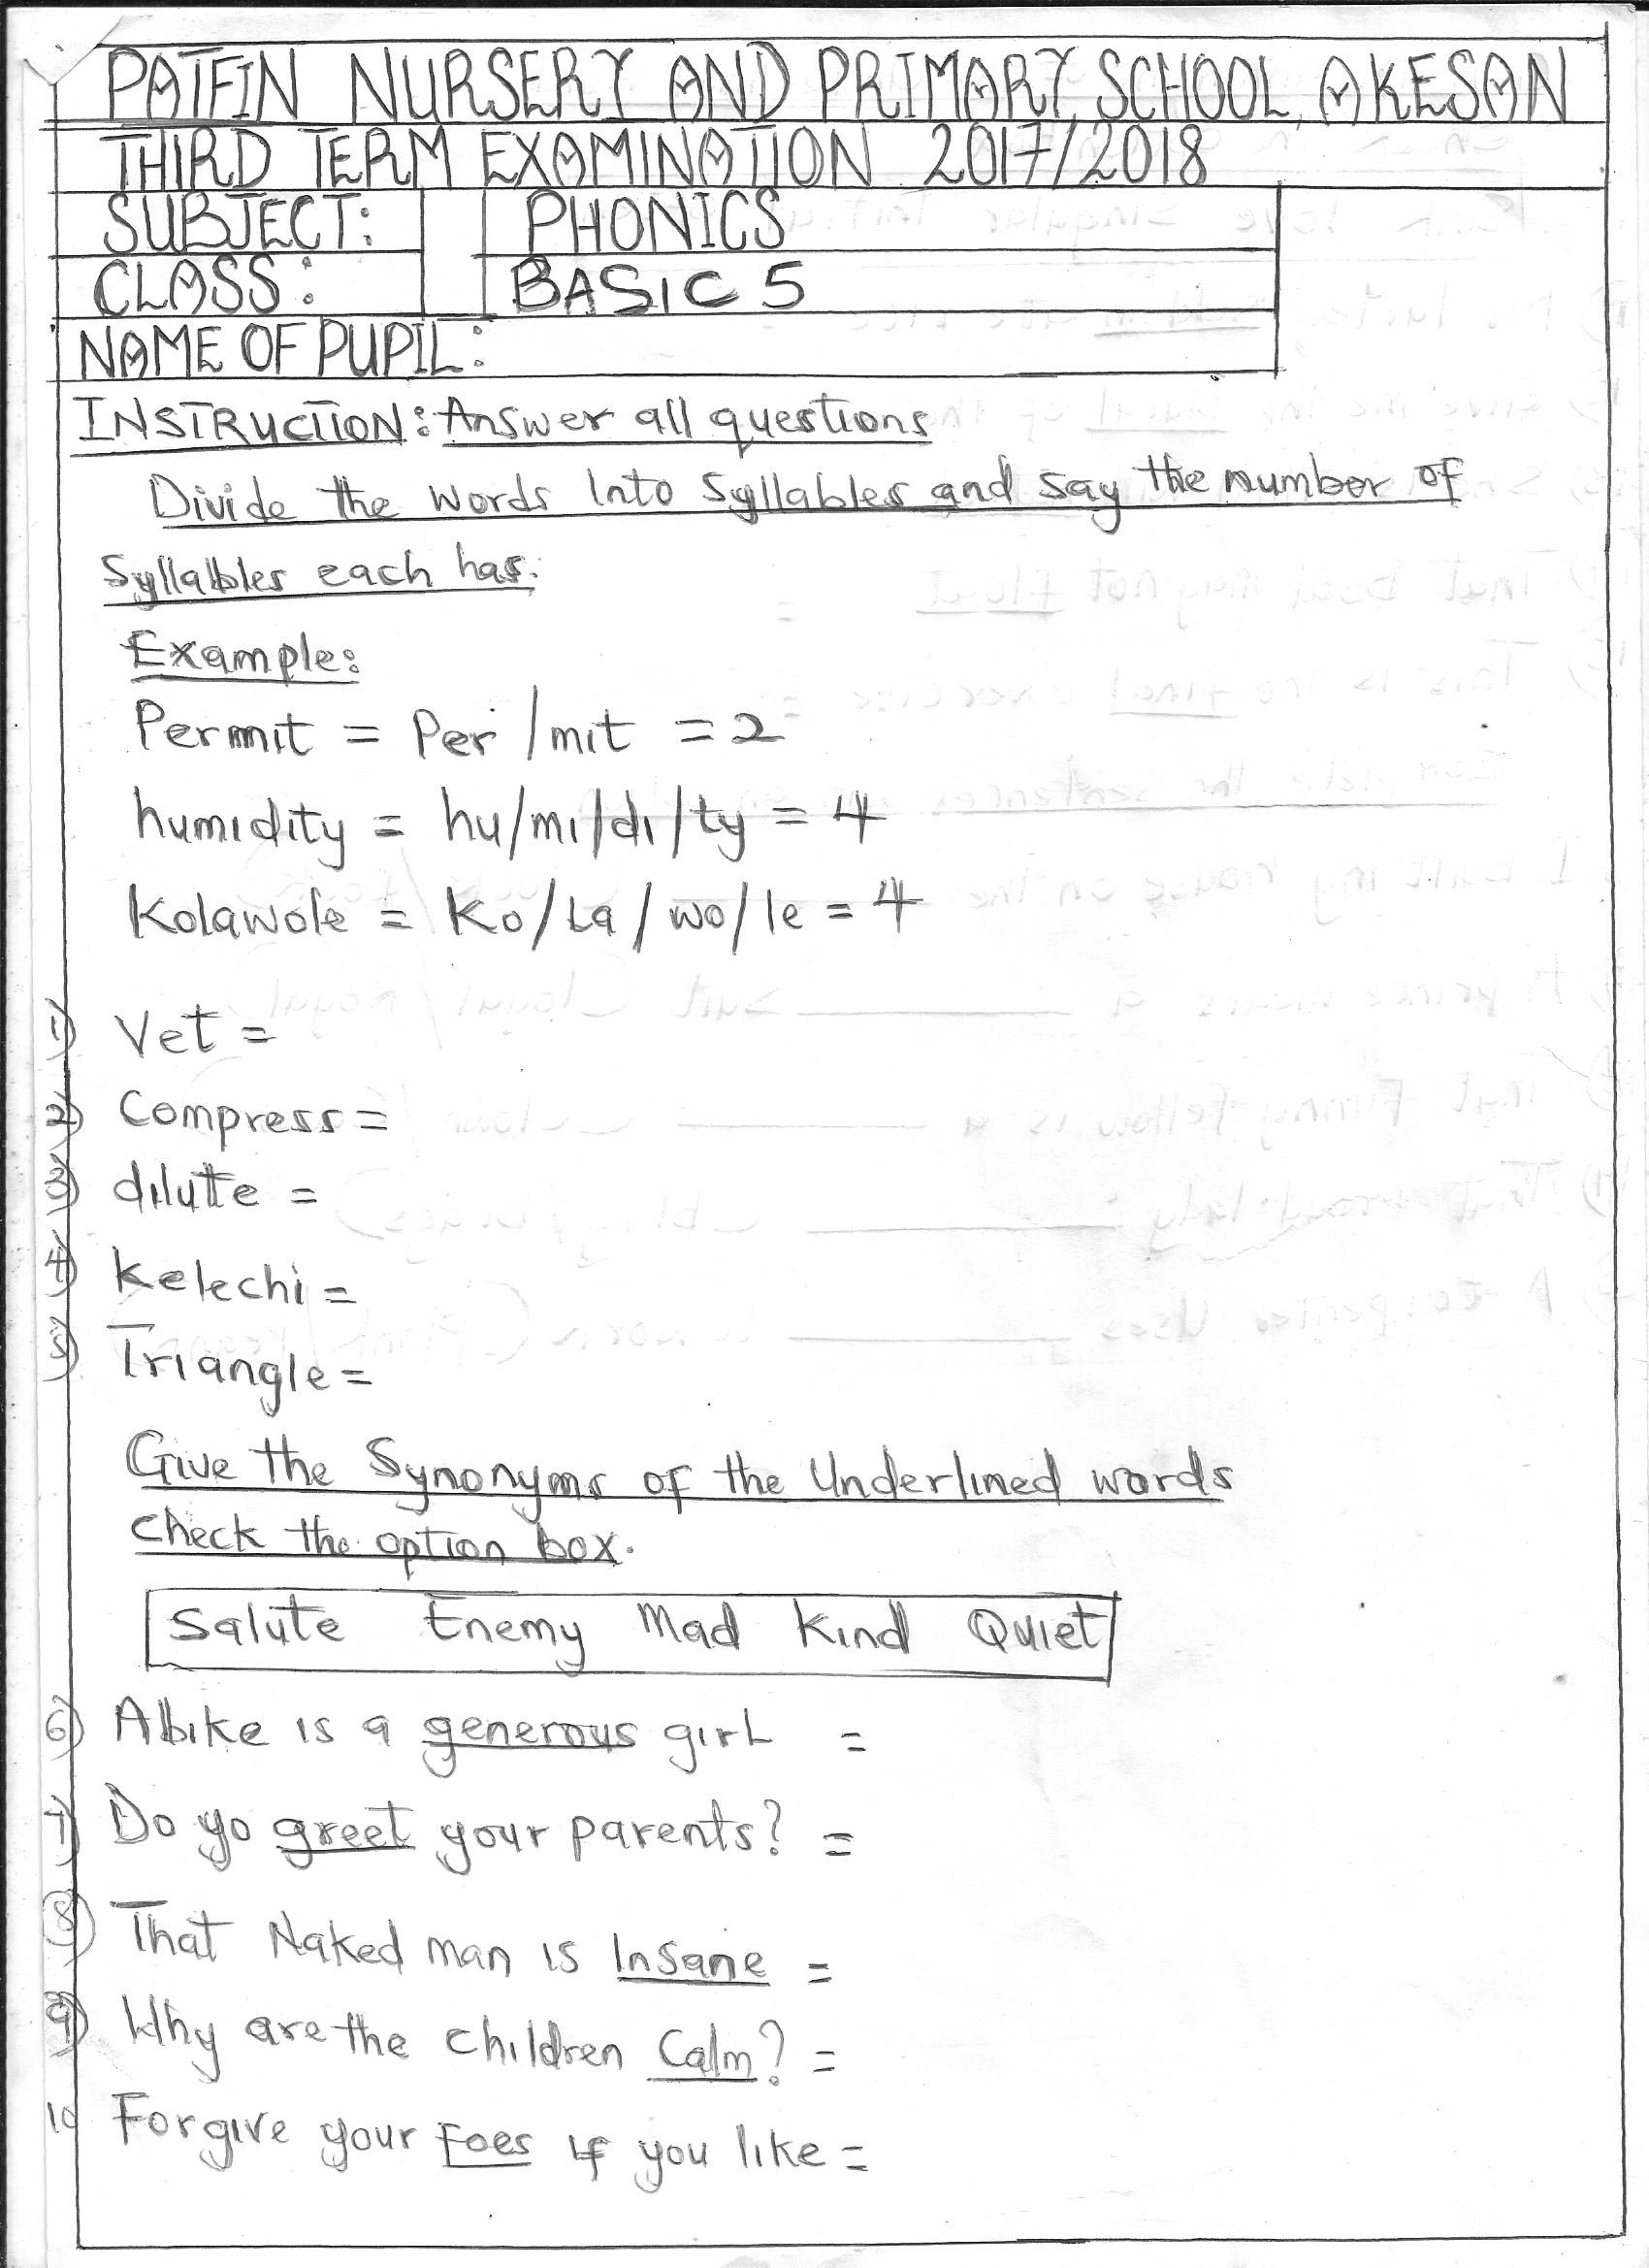 PATFIN NURSERY AND PRIMARY SCHOOL, AKESAN
THIRD TERM EXAMINATION 2017/2018
SUBJECT: PHONICS
CLASS: BASIC 5
NAME OF PUPIL:
INSTRUCTION: Answer all questions
Divide the words Into Syllables and say the number of
Syllables each has.
Example:
Permit = Per/mit = 2
humidity = hu/mi/di/ty = 4
Kolawole = Ko/La/wo/le = 4
1) Vet =
2) Compress =
3) dilute =
4) Kelechi =
5) Triangle =
Give the Synonyms of the Underlined words
check the option box.
Salute Enemy Mad Kind Quiet
6) Abike is a generous girl =
7) Do yo greet your parents? =
8) That Naked man is Insane =
9) Why are the children Calm? =
10 Forgive your Foes if you like =